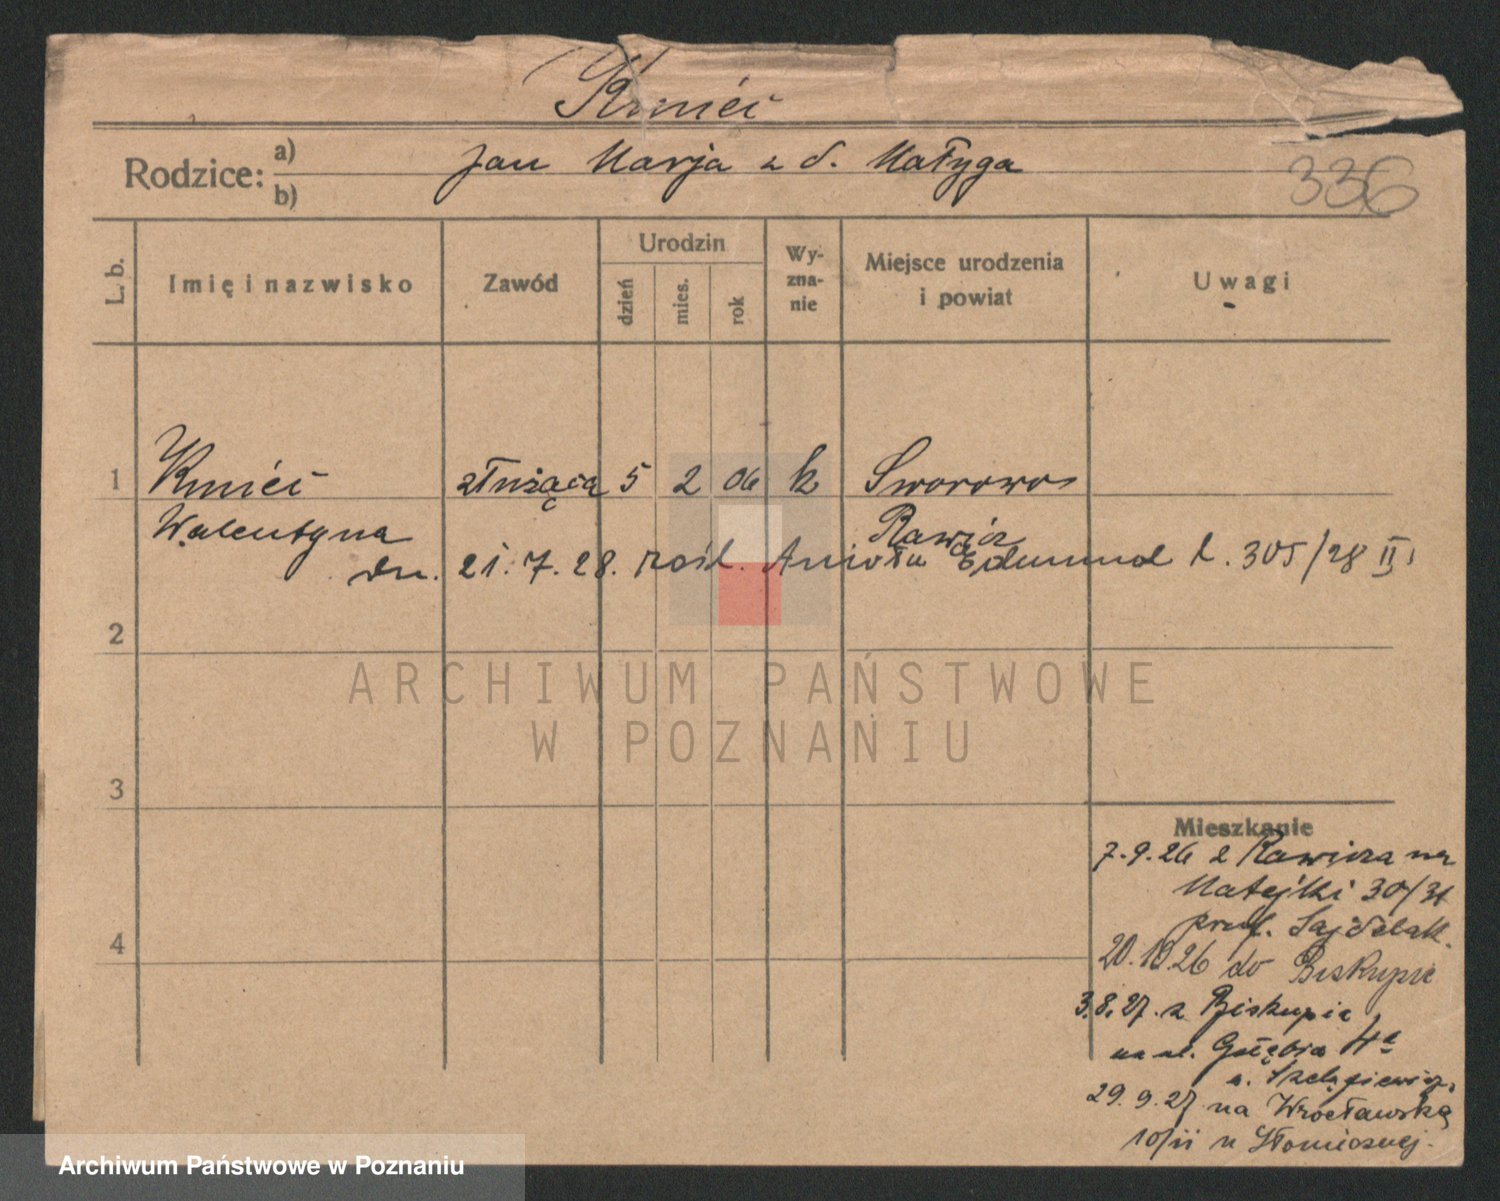 Kmieć
Rodzice: a) b) Jan Marja z d. Małyga
336
L. b. Imię i nazwisko Zawód Urodzin dzień mies. rok Wy-zna-nie Miejsce urodzenia i powiat Uwagi
1 Kmieć służąca 5 2 06 k Sworowo
Walentyna Rawicz
dn. 21. 7. 28. rośl. Anioła Edmund L. 305/28 II
2
3
4
Mieszkanie
7.9.26 z Rawicza na
Matejki 30/31
prof. Sajdlak.
20.10.26 do Biskupic
3.8.27. z Biskupic
na ul. Głębia 4a
u. Szelągiewicz,
29.9.27 na Wrocławską
10/II u Słomieznej.
ARCHIWUM PAŃSTWOWE
W POZNANIU
Archiwum Państwowe w Poznaniu